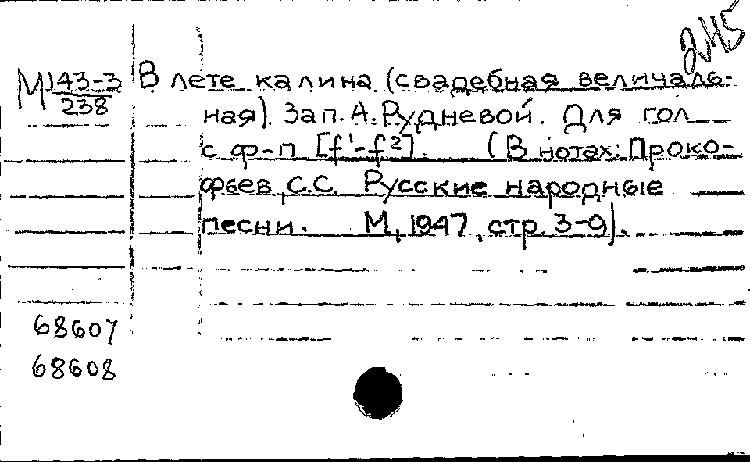 2145
М 143-3
238
В лете калина (свадебная величаль-
ная). Зап. А. Рудневой. Для гол
с ф-п [f¹-f²]. (В нотах: Проко-
фьев, С.С. Русские народные
песни. М, 1947, стр. 3-9).
68607
68608